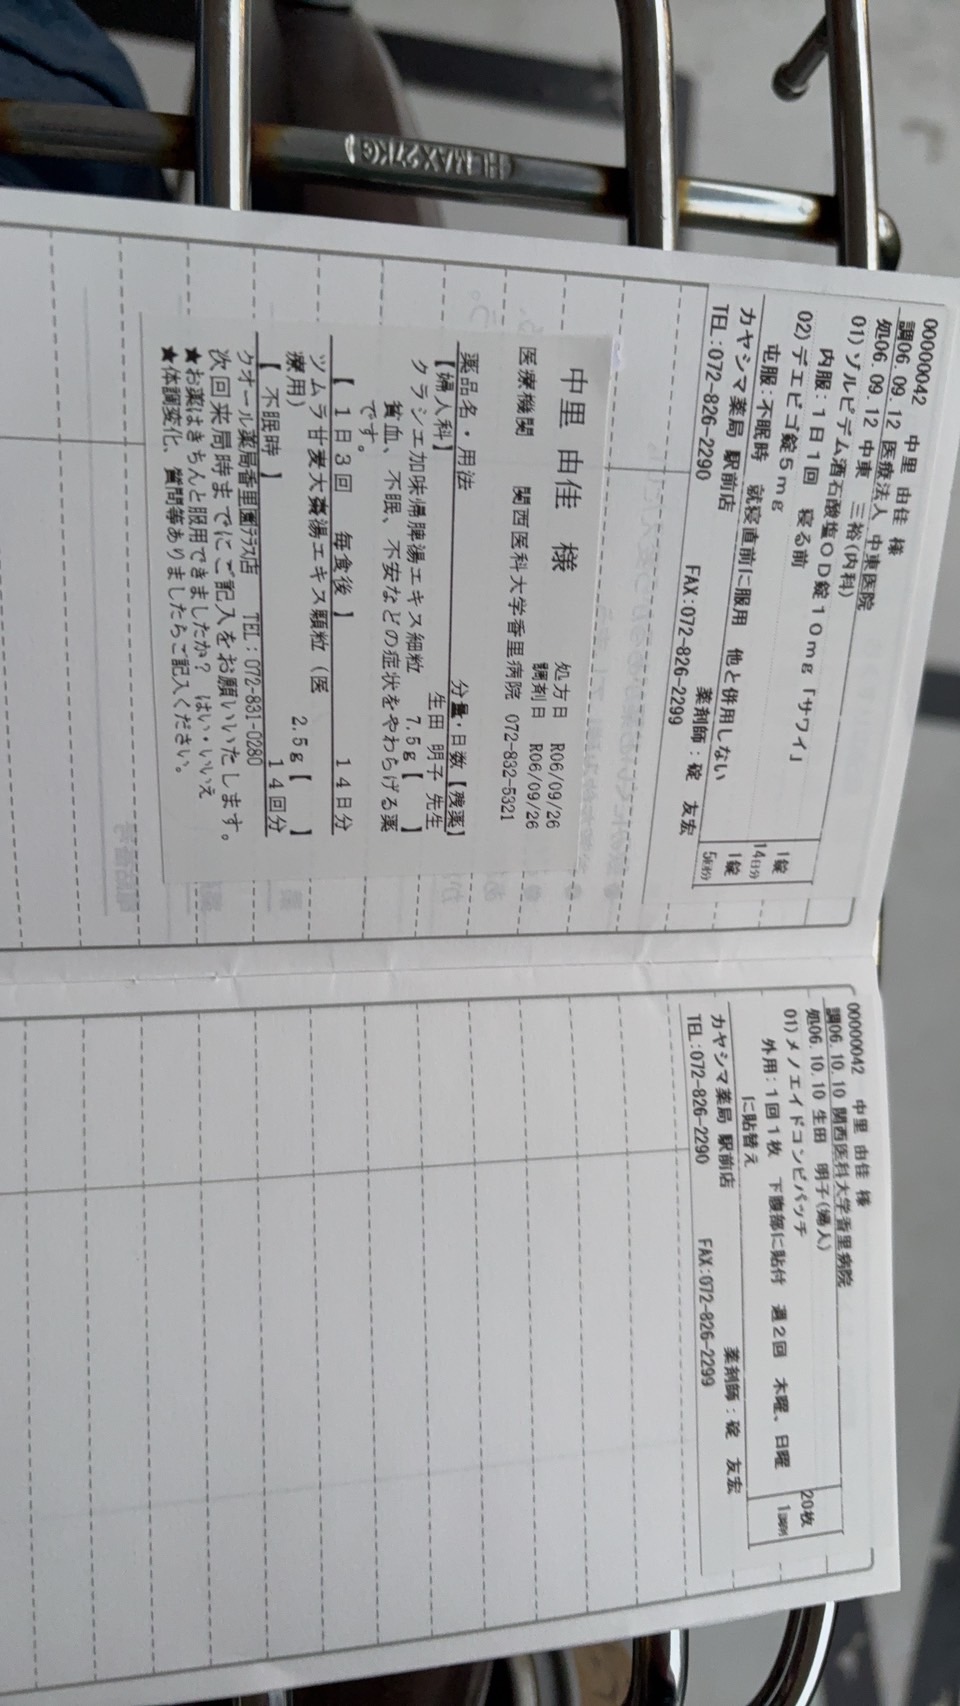 00000042 中里 由佳 様
調06.09.12 医療法人 中東医院
処06.09.12 中東 三裕(内科)
01)ゾルピデム酒石酸塩OD錠10mg「サワイ」
内服:1日1回 寝る前
1錠
14日分
02)デエビゴ錠5mg
屯服:不眠時 就寝直前に服用 他と併用しない
1錠
5回分
カヤシマ薬局 駅前店 薬剤師:碇 友宏
TEL:072-826-2290 FAX:072-826-2299
中里 由佳 様
処方日 R06/09/26
調剤日 R06/09/26
医療機関 関西医科大学香里病院 072-832-5321
薬品名・用法 分量・日数【残薬】
【婦人科】 生田 明子 先生
クラシエ加味帰脾湯エキス細粒 7.5g【 】
貧血、不眠、不安などの症状をやわらげる薬
です。
【 1日3回 毎食後 】 14日分
ツムラ甘麦大棗湯エキス顆粒(医 2.5g【 】
療用)
【 不眠時 】 14回分
クオール薬局香里園テラス店 TEL:072-831-0280
次回来局時までにご記入をお願いいたします。
★お薬はきちんと服用できましたか? はい・いいえ
★体調変化、質問等ありましたらご記入ください。
00000042 中里 由佳 様
調06.10.10 関西医科大学香里病院
処06.10.10 生田 明子(婦人)
01)メノエイドコンビパッチ
20枚
外用:1回1枚 下腹部に貼付 週2回 木曜、日曜
に貼替え
1調剤
カヤシマ薬局 駅前店 薬剤師:碇 友宏
TEL:072-826-2290 FAX:072-826-2299
MAX27KG